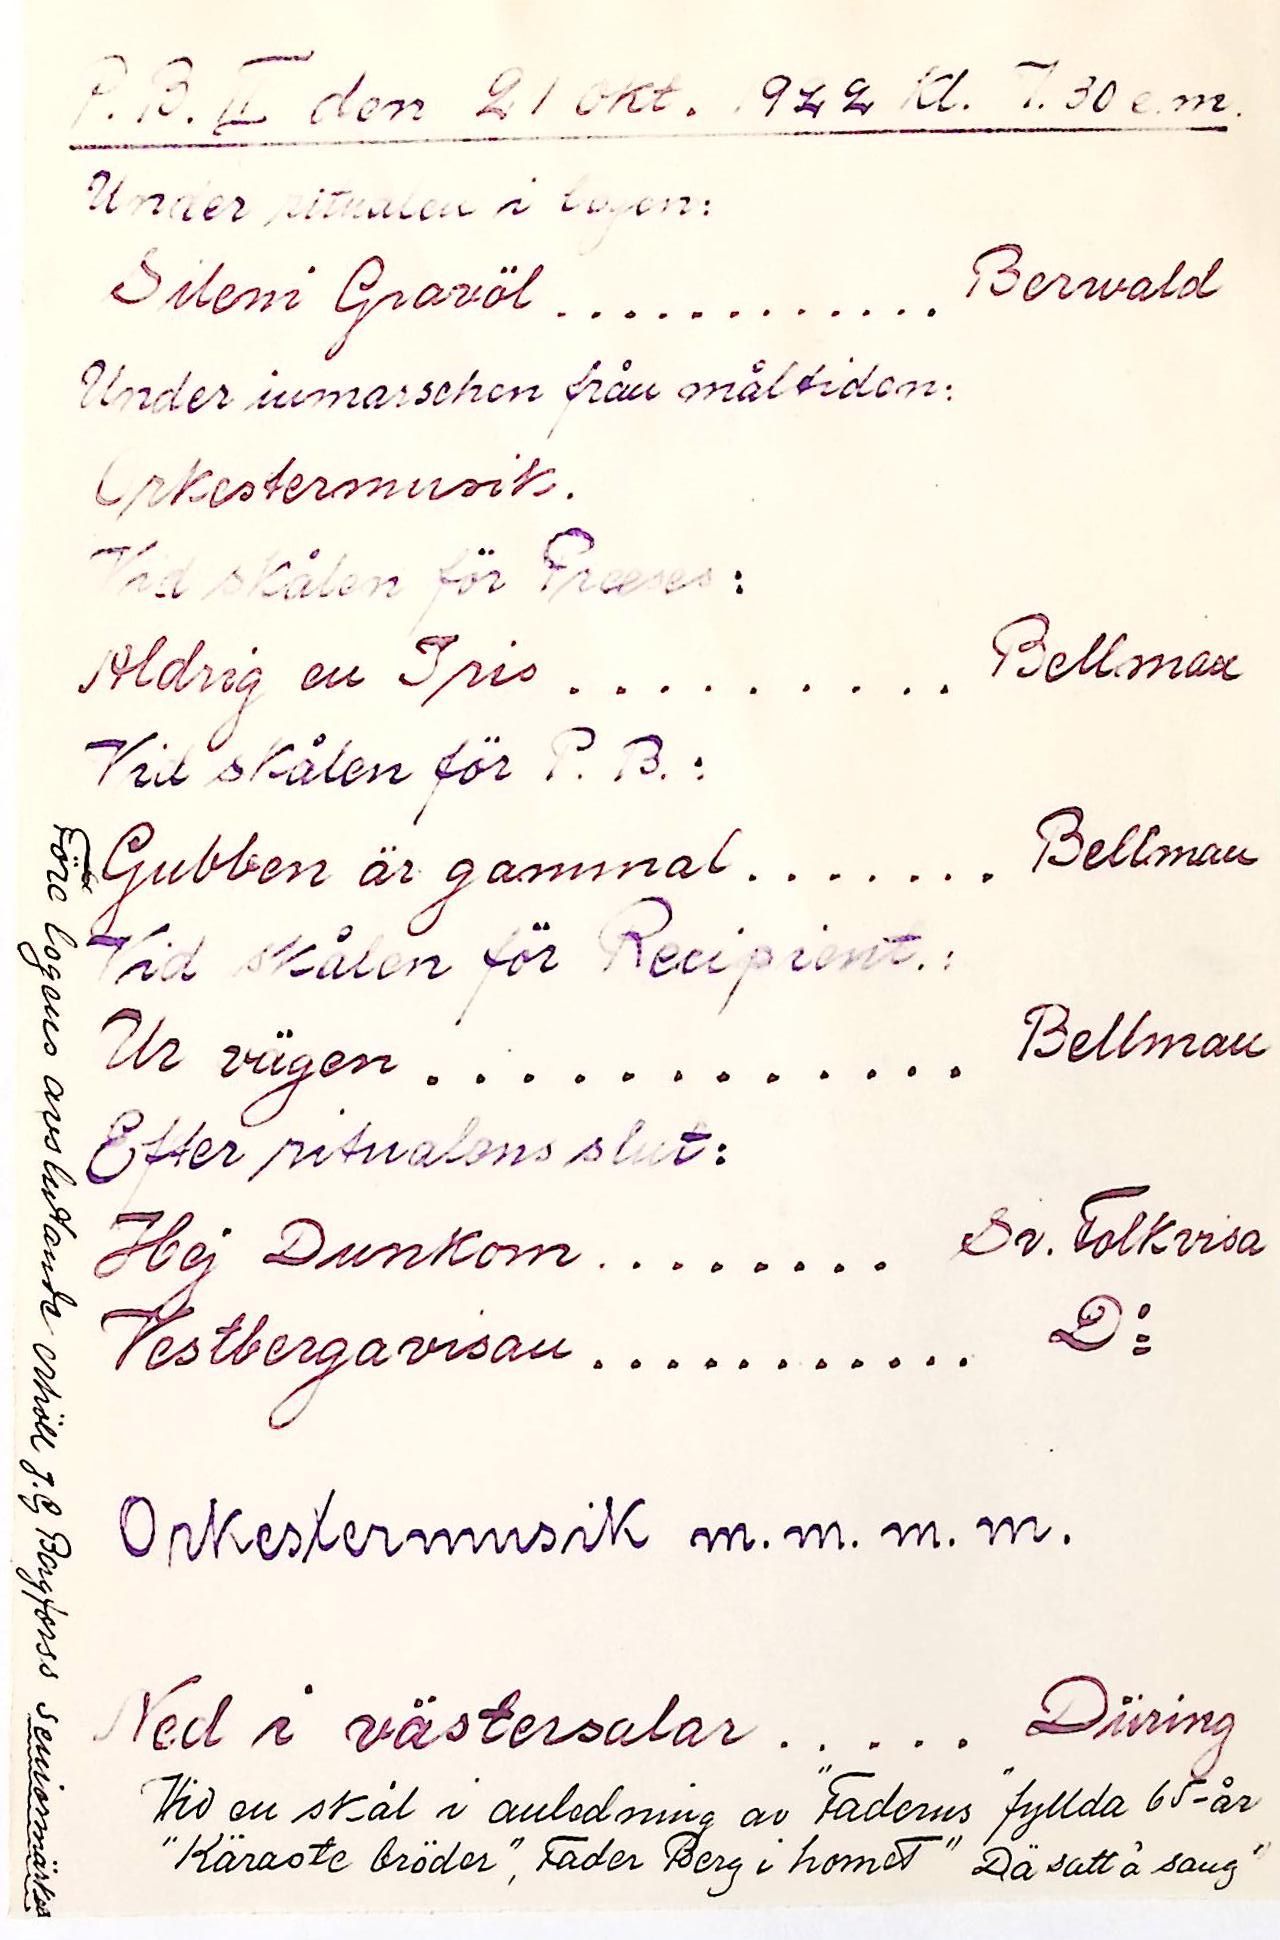 P. B. II den 21 okt. 1922 kl. 7.30 e.m.
Under ritualen i logen:
Sileni Gravöl ............. Berwald
Under inmarschen från måltiden:
Orkestermusik.
Vid skålen för Preeses:
Aldrig en Iris .......... Bellman
Vid skålen för P. B.:
Gubben är gammal ....... Bellman
Vid skålen för Recipient.:
Ur vägen .............. Bellman
Efter ritualens slut:
Hej Dunkom ......... Sv. Folkvisa
Vestbergavisan ............ D:
Orkestermusik m.m.m.m.
Ned i västersalar ..... Düring
Vid en skål i anledning av "Faderns" fyllda 65-år
"Käraste bröder", Fader Berg i hornet" Dä satt å sang"
Före logens avslutande erhöll J. G Bergforss seniormärket